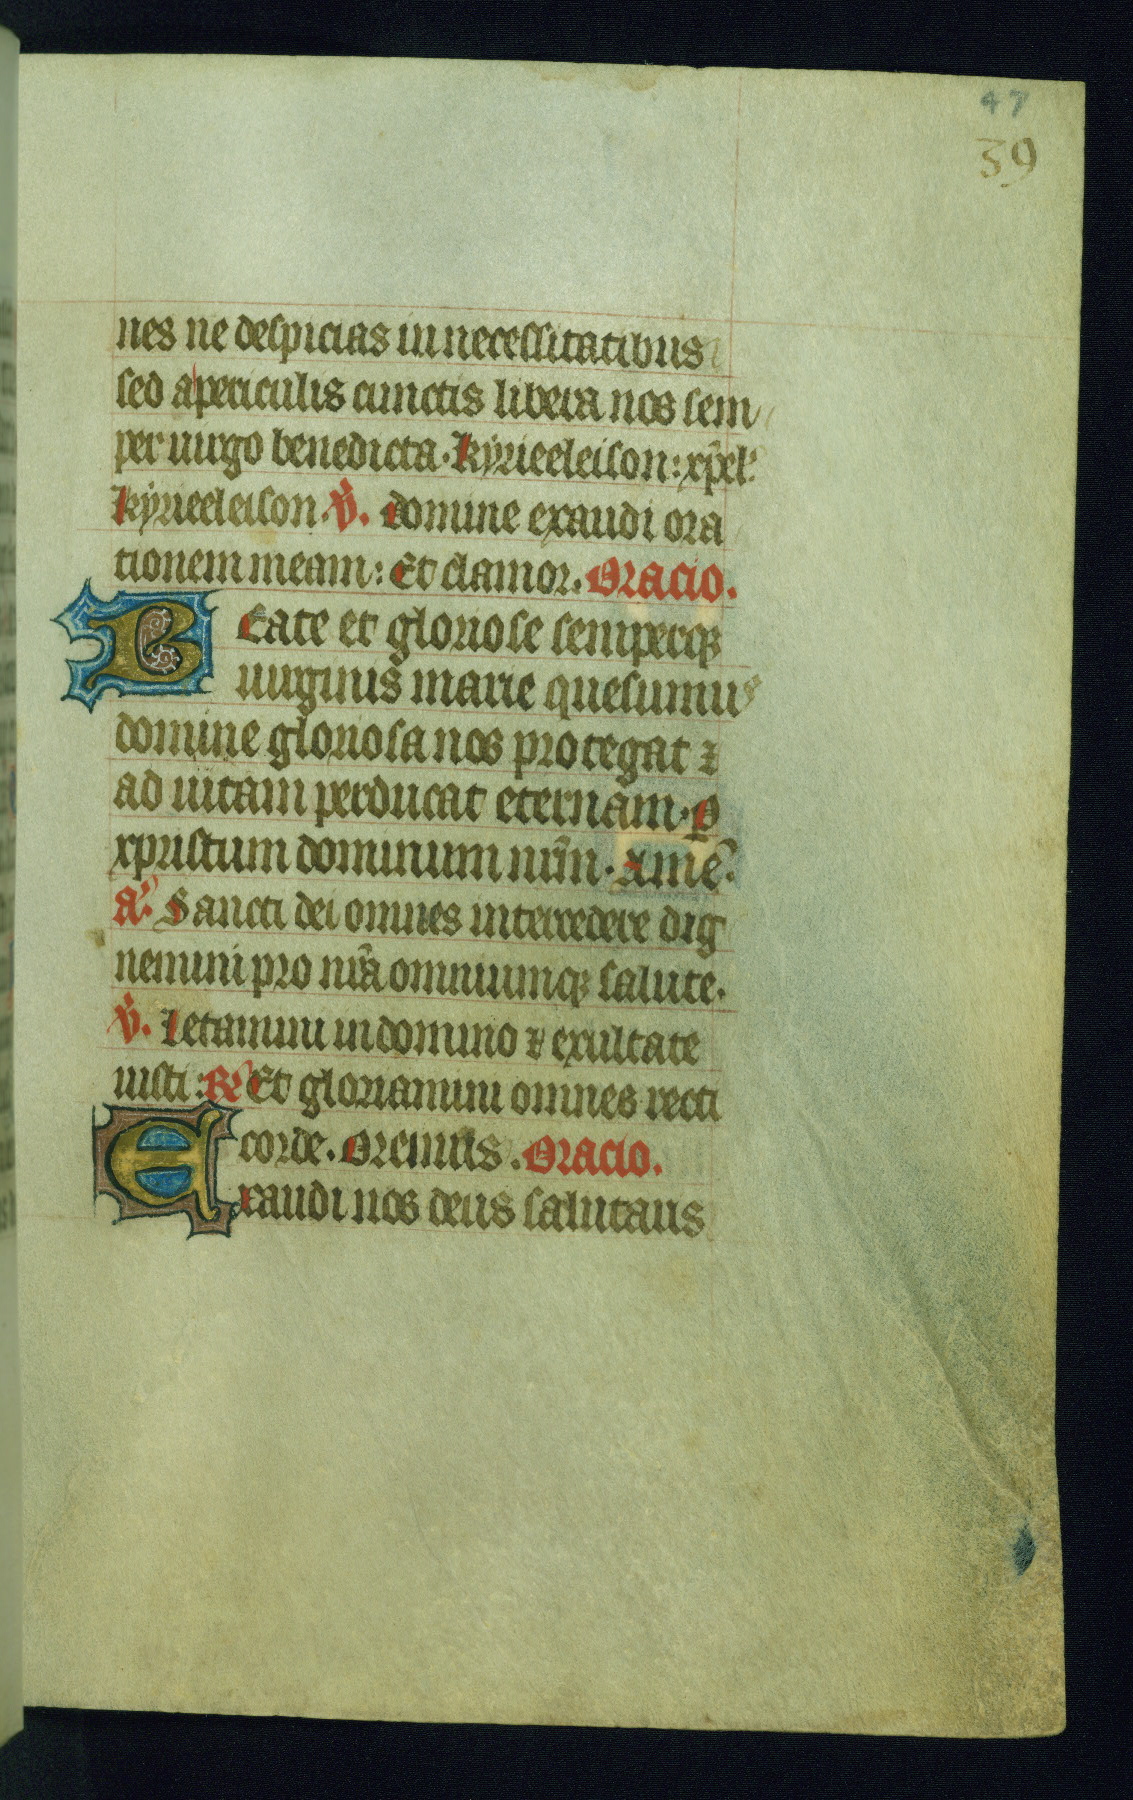 47
39
nes ne despicias in necessitatibus
sed a periculis cunctis libera nos sem
per uirgo benedicta. kyrieeleison: xp̄el'
kyrieeleison. V̄. domine exaudi ora
tionem meam: Et clamor. Oracio.
BEate et gloriose semperqꝫ
uirginis marie quesumus
domine gloriosa nos protegat ⁊
ad uitam perducat eternam. ꝑ
xpristum dominum nr̄m. amē.
a'. Sancti dei omnes intercedere dig
nemini pro nr̄a omniumqꝫ salute.
V̄. letamini in domino ⁊ exultate
iusti: R̄ Et gloriamini omnes recti
corde. Oremus. Oracio.
Exaudi nos deus salutaris